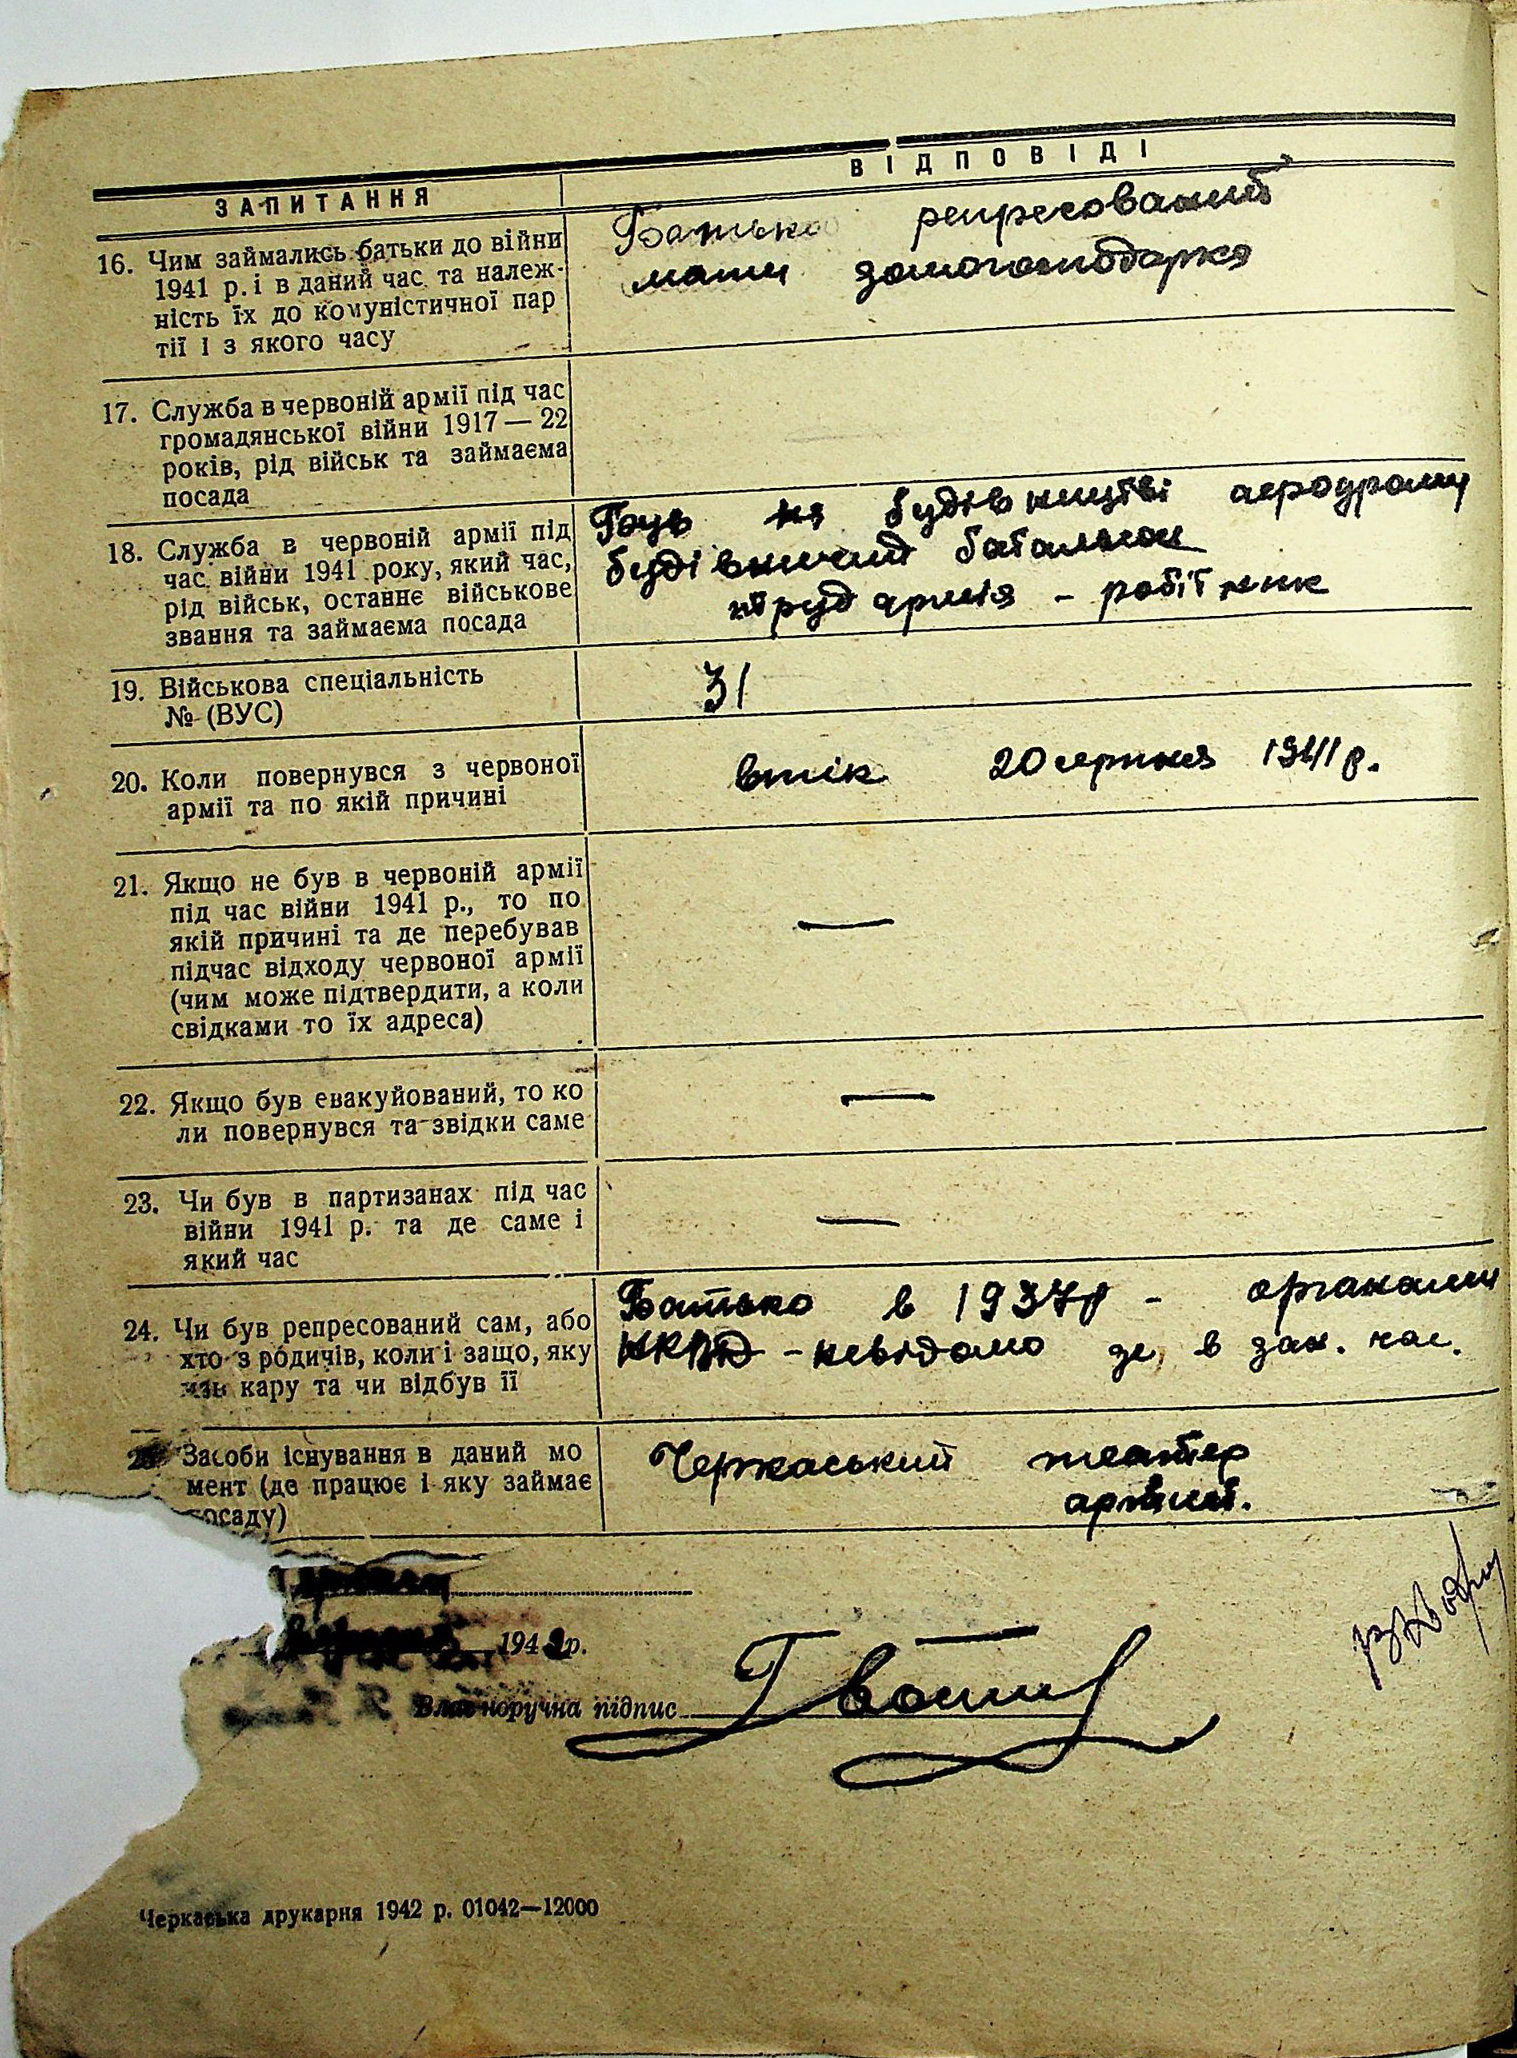 ЗАПИТАННЯ
ВІДПОВІДІ
16. Чим займались батьки до війни
1941 р. і в даний час та належ-
ність їх до комуністичної пар
тії і з якого часу
Батько репресований
мати домогосподарка
17. Служба в червоній армії під час
громадянської війни 1917 — 22
років, рід військ та займаєма
посада
18. Служба в червоній армії під
час війни 1941 року, який час,
рід військ, останнє військове
звання та займаєма посада
Був на будівництві аеродрому
будівничий батальон
труд армія - робітник
19. Військова спеціальність
№ (ВУС)
31
20. Коли повернувся з червоної
армії та по якій причині
втік 20 серпня 1941 р.
21. Якщо не був в червоній армії
під час війни 1941 р., то по
якій причині та де перебував
підчас відходу червоної армії
(чим може підтвердити, а коли
свідками то їх адреса)
—
22. Якщо був евакуйований, то ко
ли повернувся та звідки саме
—
23. Чи був в партизанах під час
війни 1941 р. та де саме і
який час
—
24. Чи був репресований сам, або
хто з родичів, коли і защо, яку
мав кару та чи відбув її
Батько в 1937 р - органами
НКВД - невідомо де, в дан. час.
25. Засоби існування в даний мо
мент (де працює і яку займає
посаду)
Черкаський театер
артист.
1942 р.
Власноручна підпис
Черкаська друкарня 1942 р. 01042—12000